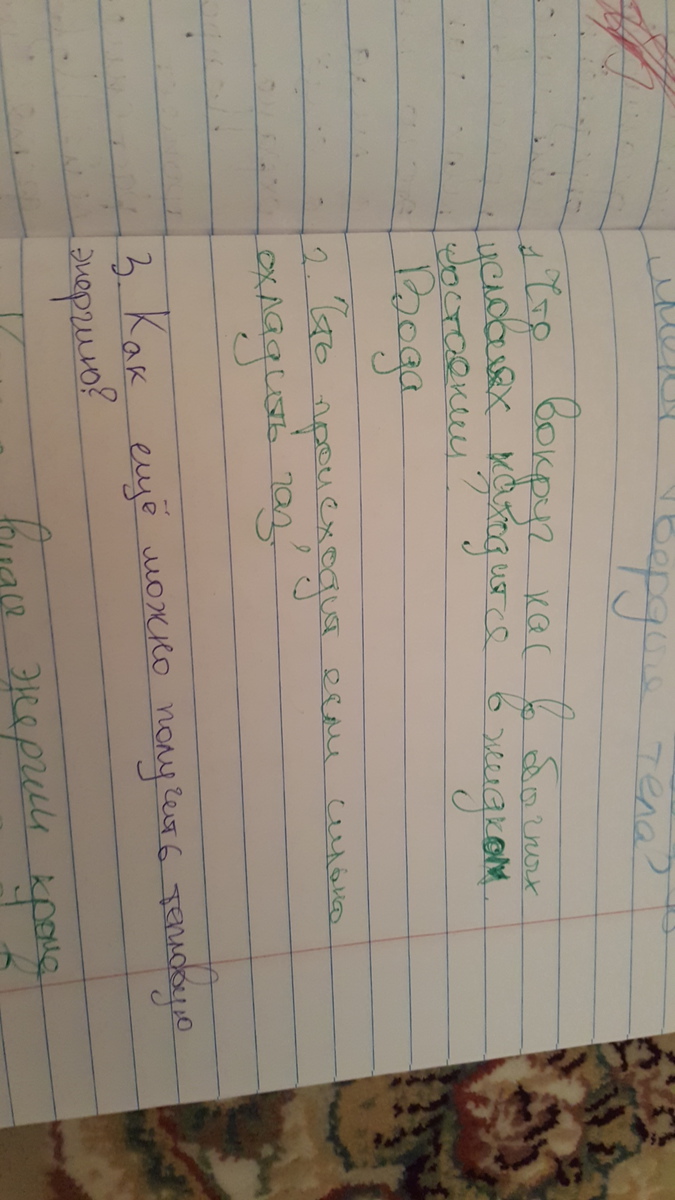 твердые тела?
1. Что вокруг нас в обычных
условиях находится в жидком
состоянии
Вода
2. Что происходит если сильно
охладить газ,
3. Как ещё можно получить тепловую
энергию?
виды энергии кроме